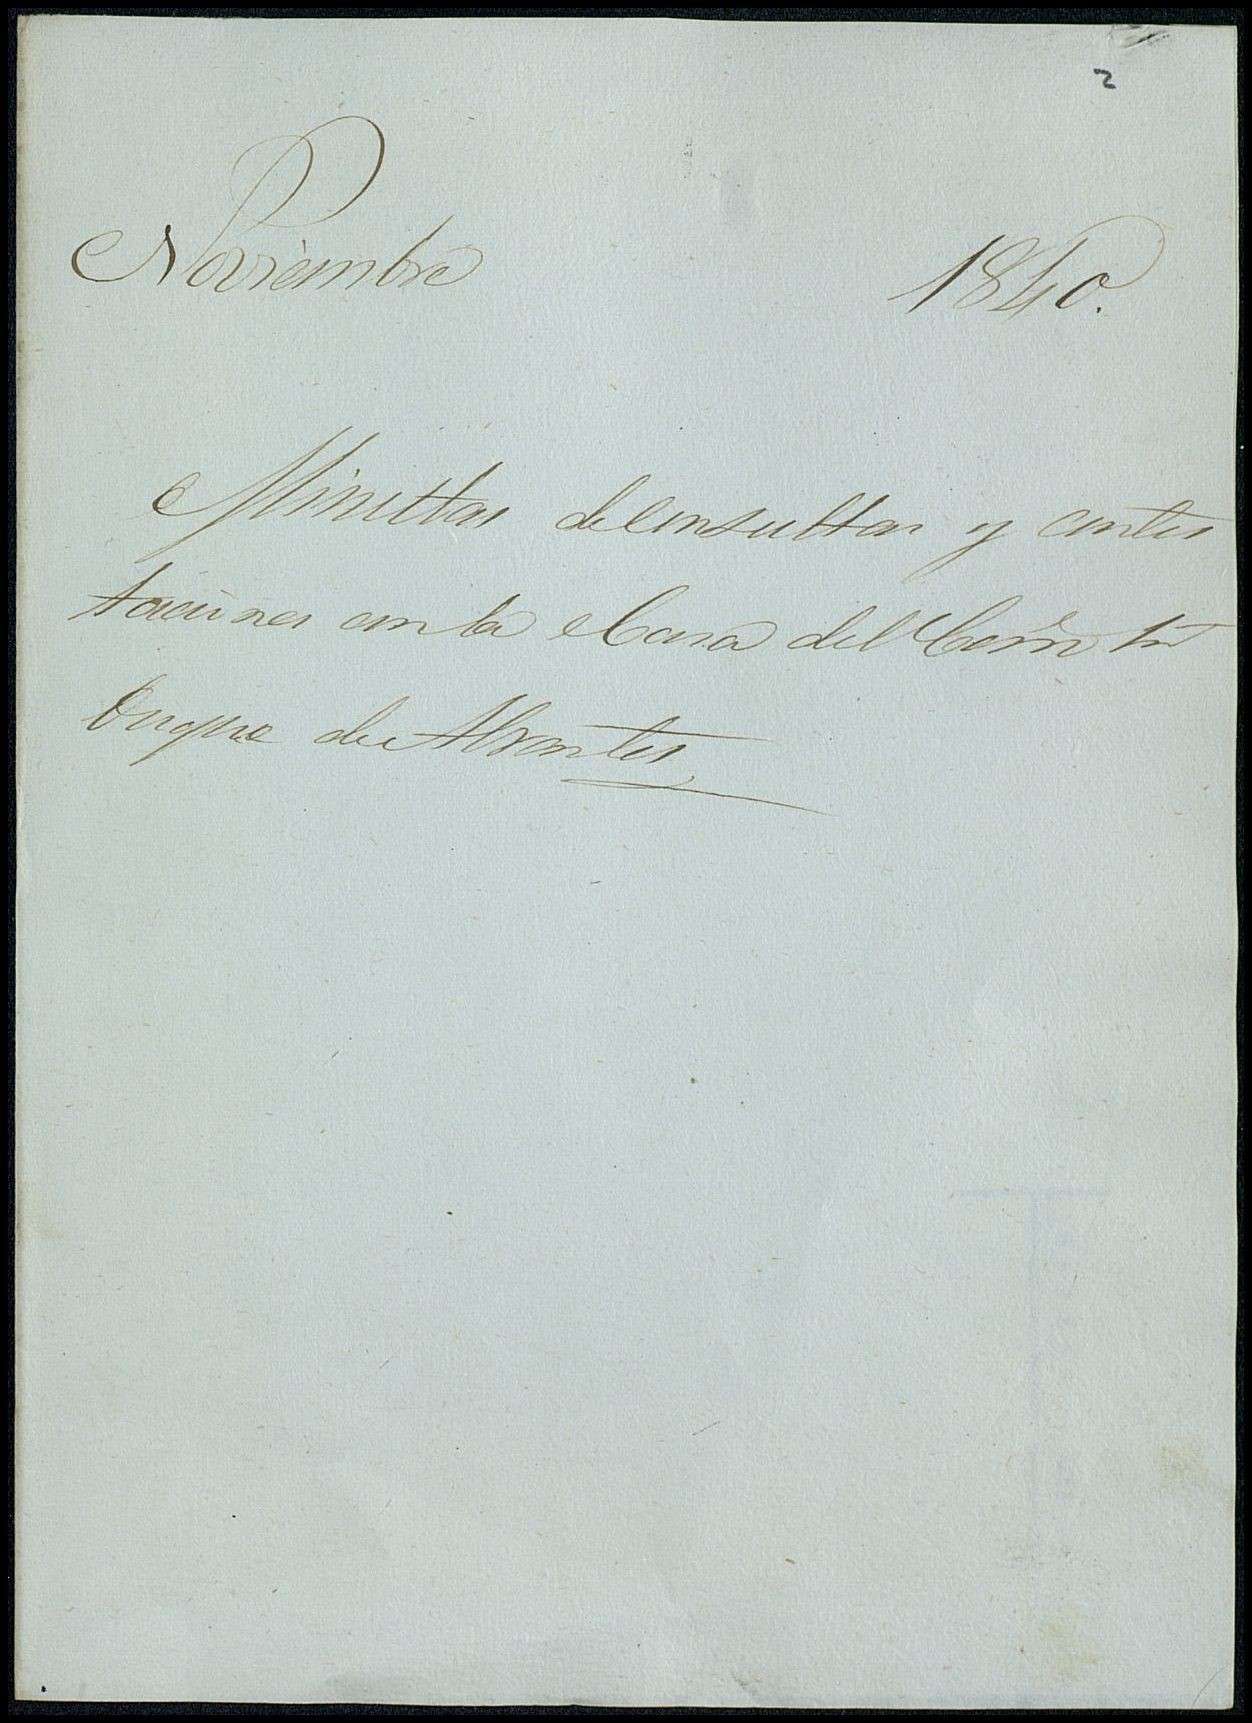 2
Noviembre 1840.
Minuttas de consultas y contes
taciones con la Casa del Exmo Sr
Duque de Abrantes